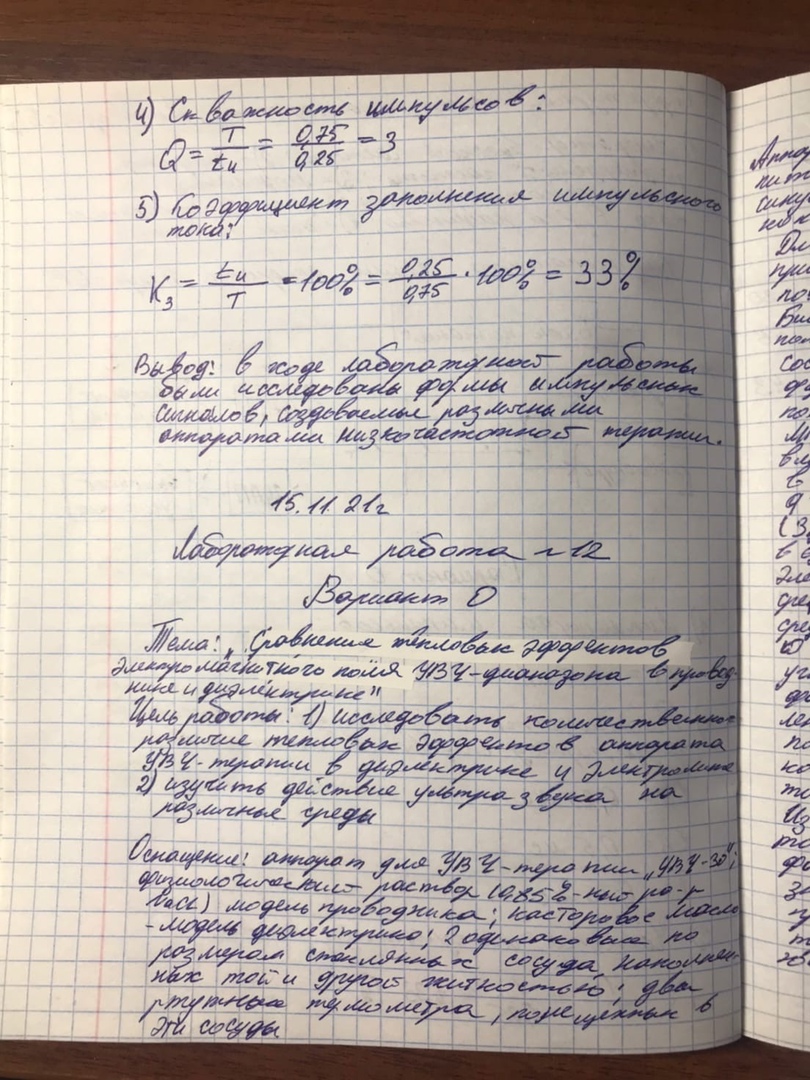 4) Скважность импульсов:
Q = T/tи = 0,75/0,25 = 3
5) Коэффициент заполнения импульсного
тока:
Kз = tи/T = 100% = 0,25/0,75 · 100% = 33%
Вывод: в ходе лабораторной работы
были исследованы формы импульсных
сигналов, создаваемые различными
аппаратами низкочастотной терапии.
15.11.21г
Лабораторная работа №12
Вариант 0
Тема: „Сравнение тепловых эффектов
электромагнитного поля УВЧ-диапазона в провод-
нике и диэлектрике"
Цель работы: 1) исследовать количественное
различие тепловых эффектов аппарата
УВЧ-терапии в диэлектрике и электролите
2) изучить действие ультразвука на
различные среды
Оснащение: аппарат для УВЧ-терапии „УВЧ-30";
физиологический раствор (0,85%-ный р-р
NaCl) модель проводника; касторовое масло
-модель диэлектрика; 2 одинаковые по
размерам стеклянных сосуда, наполнен-
ных той и другой житкостью; два
ртутных термометра, помещённых в
эти сосуды
Аппар
пит
Дл
при